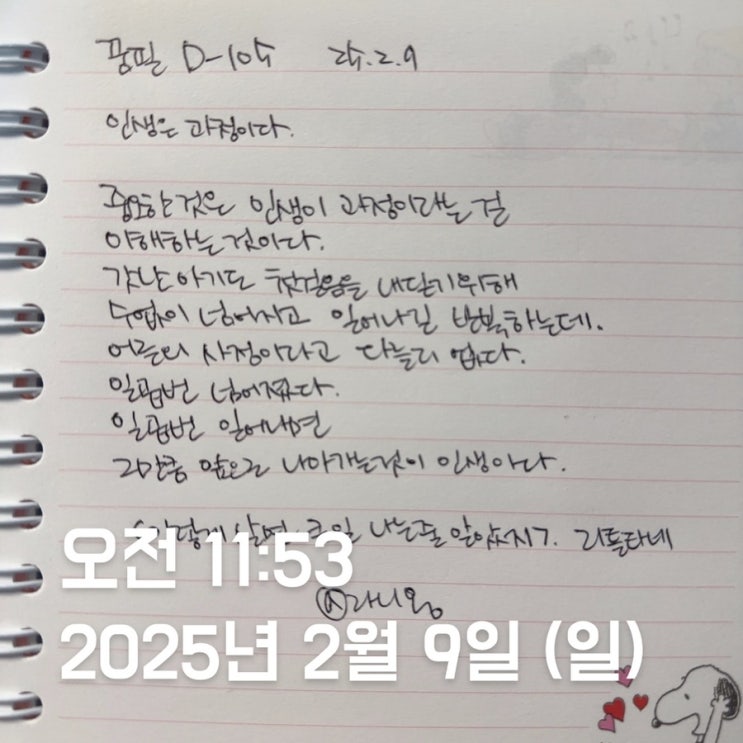 꿈필 D-104 25.2.9
인생은 과정이다.
중요한 것은 인생이 과정이라는 걸
이해하는 것이다.
갓난 아기도 첫걸음을 내딛기위해
수없이 넘어지고 일어나길 반복하는데.
어른의 사정이라고 다를리 없다.
일곱번 넘어졌다.
일곱번 일어나면
그만큼 앞으로 나아가는것이 인생이다.
살면 큰일 나는줄 알았지7. 리틀타네
오전 11:53
라니킹
2025년 2월 9일 (일)